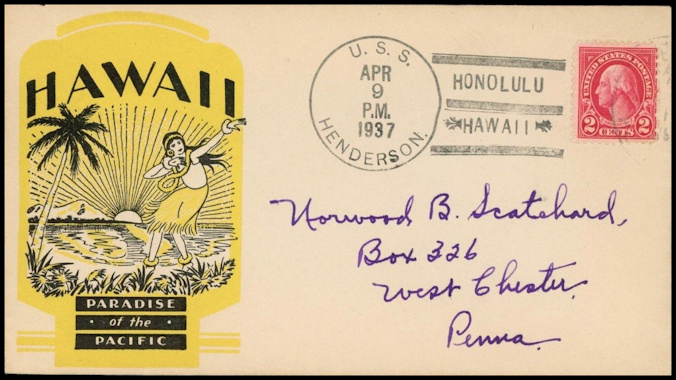 HAWAII
PARADISE
of the
PACIFIC
U. S. S.
APR
9
P.M.
1937
HENDERSON.
HONOLULU
HAWAII
UNITED STATES POSTAGE
2 CENTS 2
Norwood B. Scatchard,
Box 326
West Chester,
Penna.